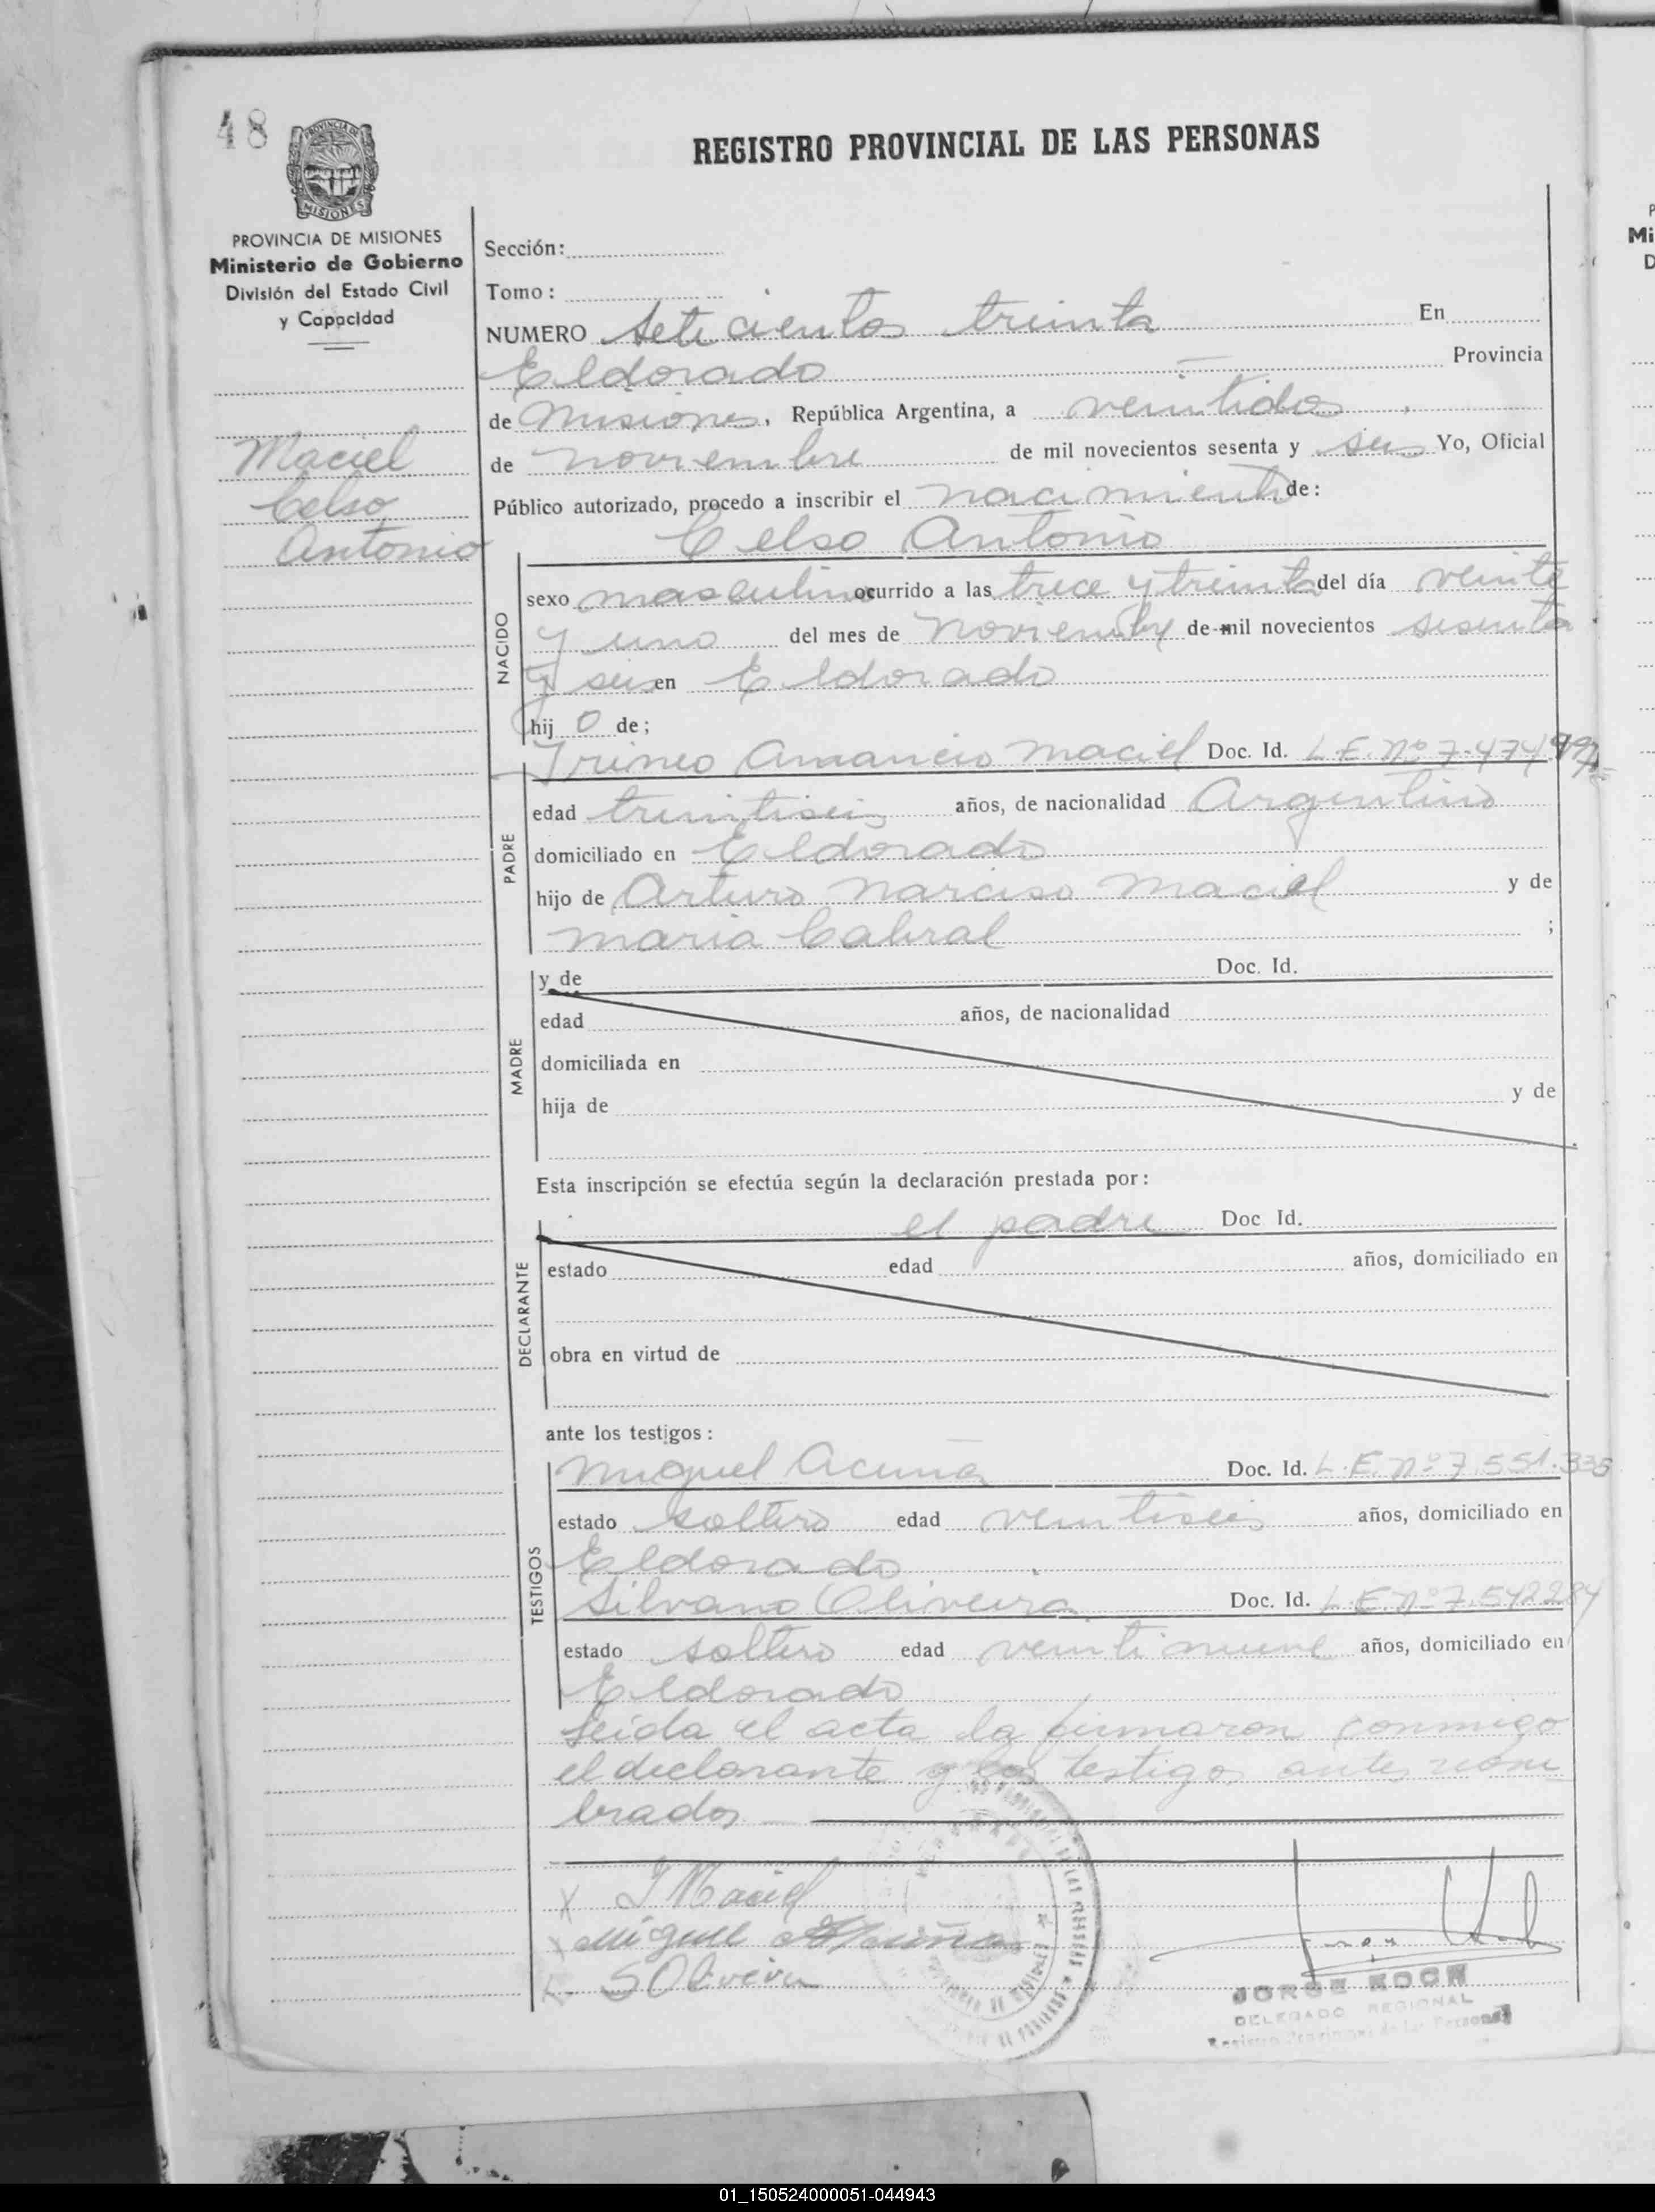 48
REGISTRO PROVINCIAL DE LAS PERSONAS
PROVINCIA DE
MISIONES
PROVINCIA DE MISIONES
Ministerio de Gobierno
División del Estado Civil
y Capacidad
Maciel
Celso
Antonio
Sección:
Tomo:
NUMERO Setecientos treinta En
Eldorado Provincia
de Misiones, República Argentina, a veintidos
de noviembre de mil novecientos sesenta y seis Yo, Oficial
Público autorizado, procedo a inscribir el nacimiento de:
Celso Antonio
NACIDO
sexo masculino ocurrido a las trece y treinta del día veinte
y uno del mes de Noviembre de mil novecientos sesenta
y seis en Eldorado
hij o de;
PADRE
Irineo Amancio Maciel Doc. Id. L.E. Nº 7.474.
edad treintiseis años, de nacionalidad Argentino
domiciliado en Eldorado
hijo de Arturo Narciso Maciel y de
Maria Cabral ;
MADRE
y de Doc. Id.
edad años, de nacionalidad
domiciliada en
hija de y de
Esta inscripción se efectúa según la declaración prestada por:
DECLARANTE
el padre Doc Id.
estado edad años, domiciliado en
obra en virtud de
ante los testigos:
TESTIGOS
Miguel Acuña Doc. Id. L.E. Nº 7.551.335
estado soltero edad veintiseis años, domiciliado en
Eldorado
Silvano Oliveira Doc. Id. L.E. Nº 7.542.284
estado soltero edad veintinueve años, domiciliado en
Eldorado
Leida el acta la firmaron conmigo
el declarante y los testigos antes nom
brados
X I Maciel
X Miguel Acuña
X S Oliveira
JORGE KOCH
DELEGADO REGIONAL
Registro Provincial de las Personas
01_150524000051-044943